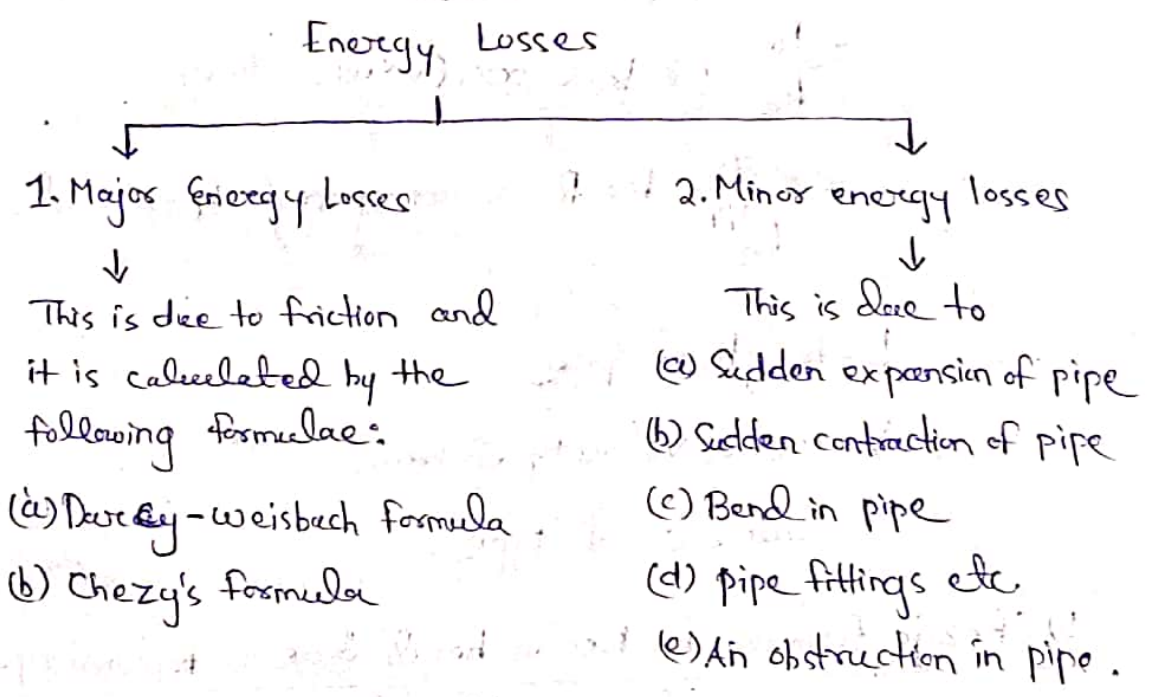 Energy Losses
1. Major Energy Losses
This is due to friction and
it is calculated by the
following formulae:
(a) Darcy-weisbach formula.
(b) Chezy's formula
2. Minor energy losses
This is due to
(a) Sudden expansion of pipe
(b) Sudden contraction of pipe
(c) Bend in pipe
(d) pipe fittings etc.
(e) An obstruction in pipe.